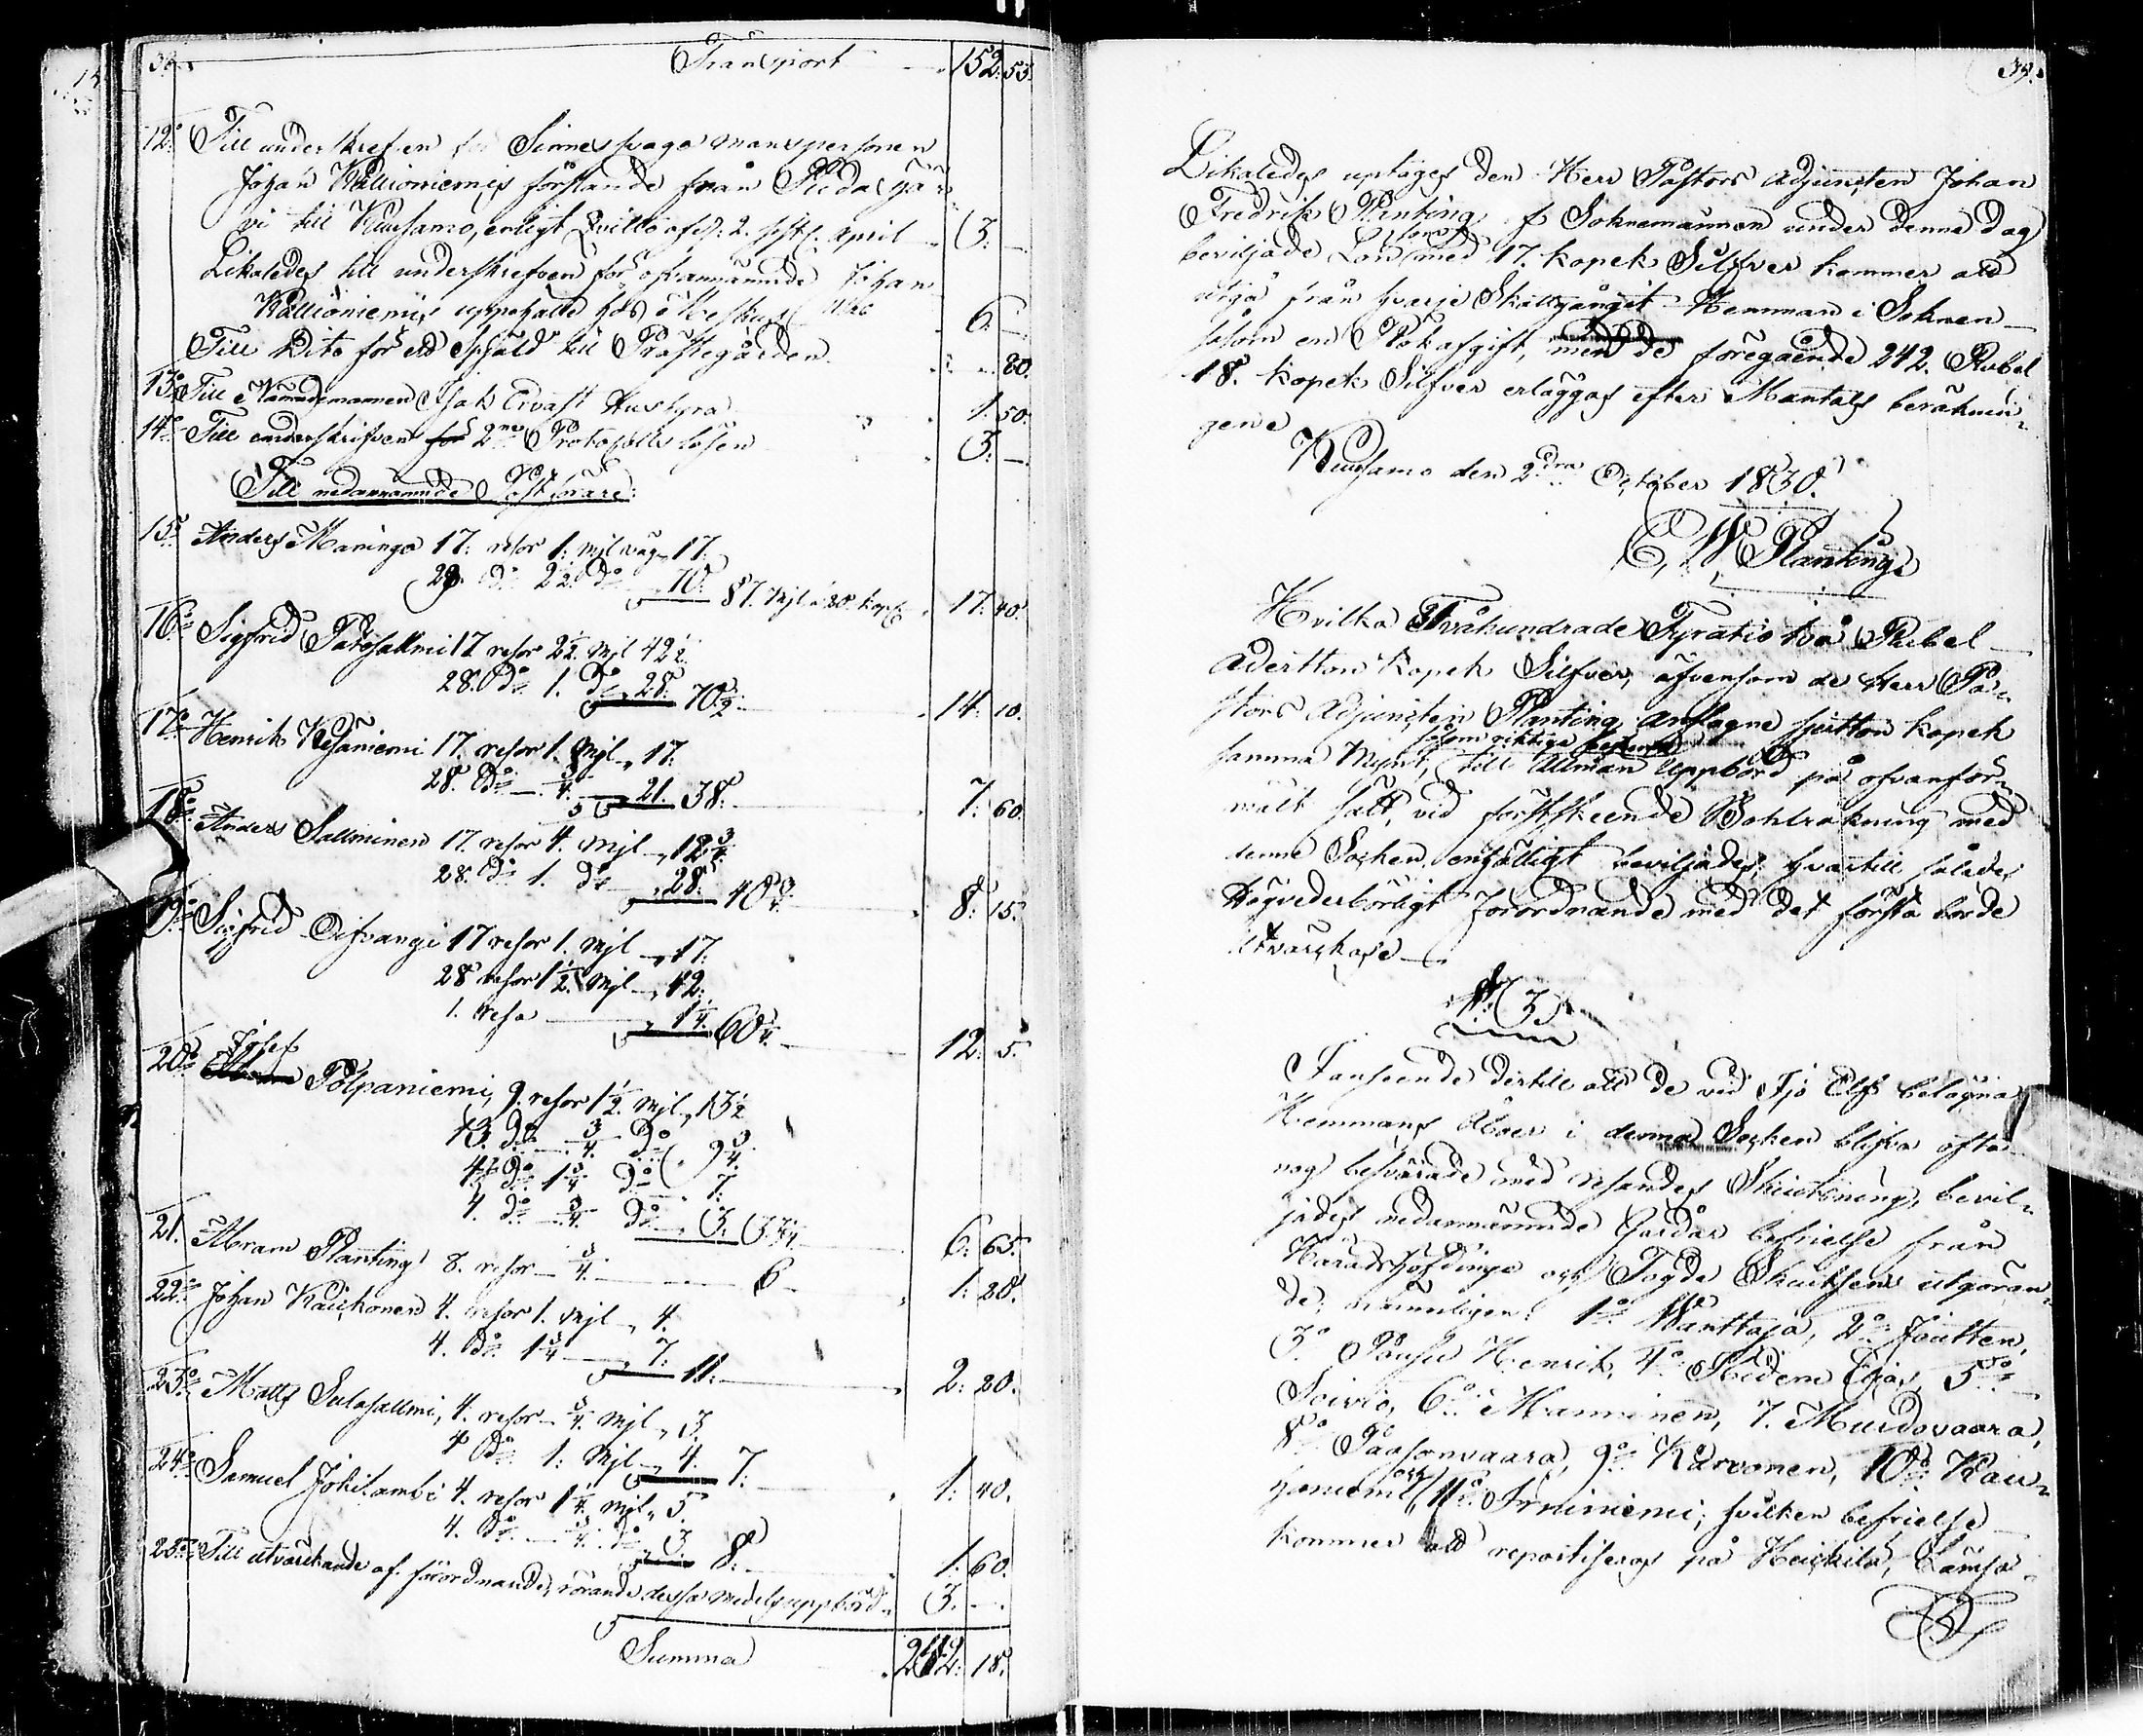 38. Transport 152. 53.
12o Till underskrefven för Sinnessvaga manspersonen
Johan Kallioniemis förslande från Pudasjär-
vi till Kuusamo, enligt qvitto af d: 2. sistl. April 3. —
Likaledes till underskrefven för ofvannämnde Johan
Kallioniemis uppehälle 6. —
Till Dito för ett Spjäld till Prästegården 80.
13o Till Nämndemannen Isak Ervast Hushyra 1. 50.
14o Till underskrifven för 2ne Protokolls lösen 3. —
Till nedannämnde Postförare:
15o Anders Maninga 17. resor 1. mil väg 17.
28. do 2½ do 70. 87. Mil à 20. kop. 17. 40.
16o Sigfrid Patosalmi 17 resor 2½ mil 42½
28. do 1. do 28. 70½ 14. 10.
17o Henrik Kesäniemi 17. resor 1. mil 17.
28. do ¾ 21. 38. 7. 60.
18o Anders Salminen 17. resor ¾ mil 12¾
28. do 1. do 28. 40¾ 8. 15.
19o Sigfrid Oifvangi 17 resor 1. mil 17.
28 resor 1½ mil 42.
1. resa 1¼ 60¼ 12. 5.
20o Josef Pölpäniemi, 9. resor 1½ mil 13½
13. do ¾ do 9¾
4. do 1¾ do 7.
4. do ¾ do 3. 33¼ 6. 65.
21. Abram Planting 8. resor ¾ 6 1. 20.
22o Johan Kaukonen 4. resor 1. mil 4.
4. do 1¾ 7. 11. 2. 20.
23o Matts Sulasalmi, 4. resor ¾ mil 3.
4 do 1. mil 4. 7. 1. 40.
24o Samuel Jokilambi 4. resor 1¼ mil 5.
4. do ¾ do 3. 8. 1. 60.
25o Till utvärkande af förordnande, rörande dessa medels uppbörd 3. —
Summa 242. 18.
39.
Likaledes uptages den Herr Pastors Adjuncten Johan
Fredrik Planting af Soknemännen under denna dag
beviljade Lön med 17. kopek Silfver kommer att
utgå från hvarje Skattgångit Hemman i Soknen
såsom en Rökafgift, men de föregående 242. Rubel
18. kopek Silfver erläggas efter Mantals beräknin-
gene
Kuusamo den 2dra October 1830.
E, W, Planting
Hvilka Tvåhundrade Fyratio två Rubel
Aderton kopek Silfver, äfvensom de Herr Pa-
stors Adjuncten Planting anslagne sjutton kopek
såsom riktiga
samma Mynt, till Allmän Uppbörd på ofvanför-
mält sätt, vid förstskeende Bohlräkning med
denne Socken enhälligt beviljades, hvartill således
Högvederbörligt Förordnande med det första borde
utvärkas.
§. 3.
I anseende dertill att de vid Ijo Elf belägna
Hemmans Åboer i denna Socken blifva ofta
nog besvärade med resandes Skiutsning, bevil-
jades nedannämnde Gårdar befrielse från
Häradshöfdinge och Fogde Skiutsens utgöran-
de, nemligen: 1o Wanttaja, 2o Jautten,
3o Pousu Henrik, 4o Eljas, 5o
Soivio, 6o Manninen, 7. Murdovaara,
8o Paasonvaara, 9o Karvonen, 10o Kau-
och
haniemi, 11o Irniniemi; hvilken befrielse
kommer att repartiseras på Heikkilä, Lämsä